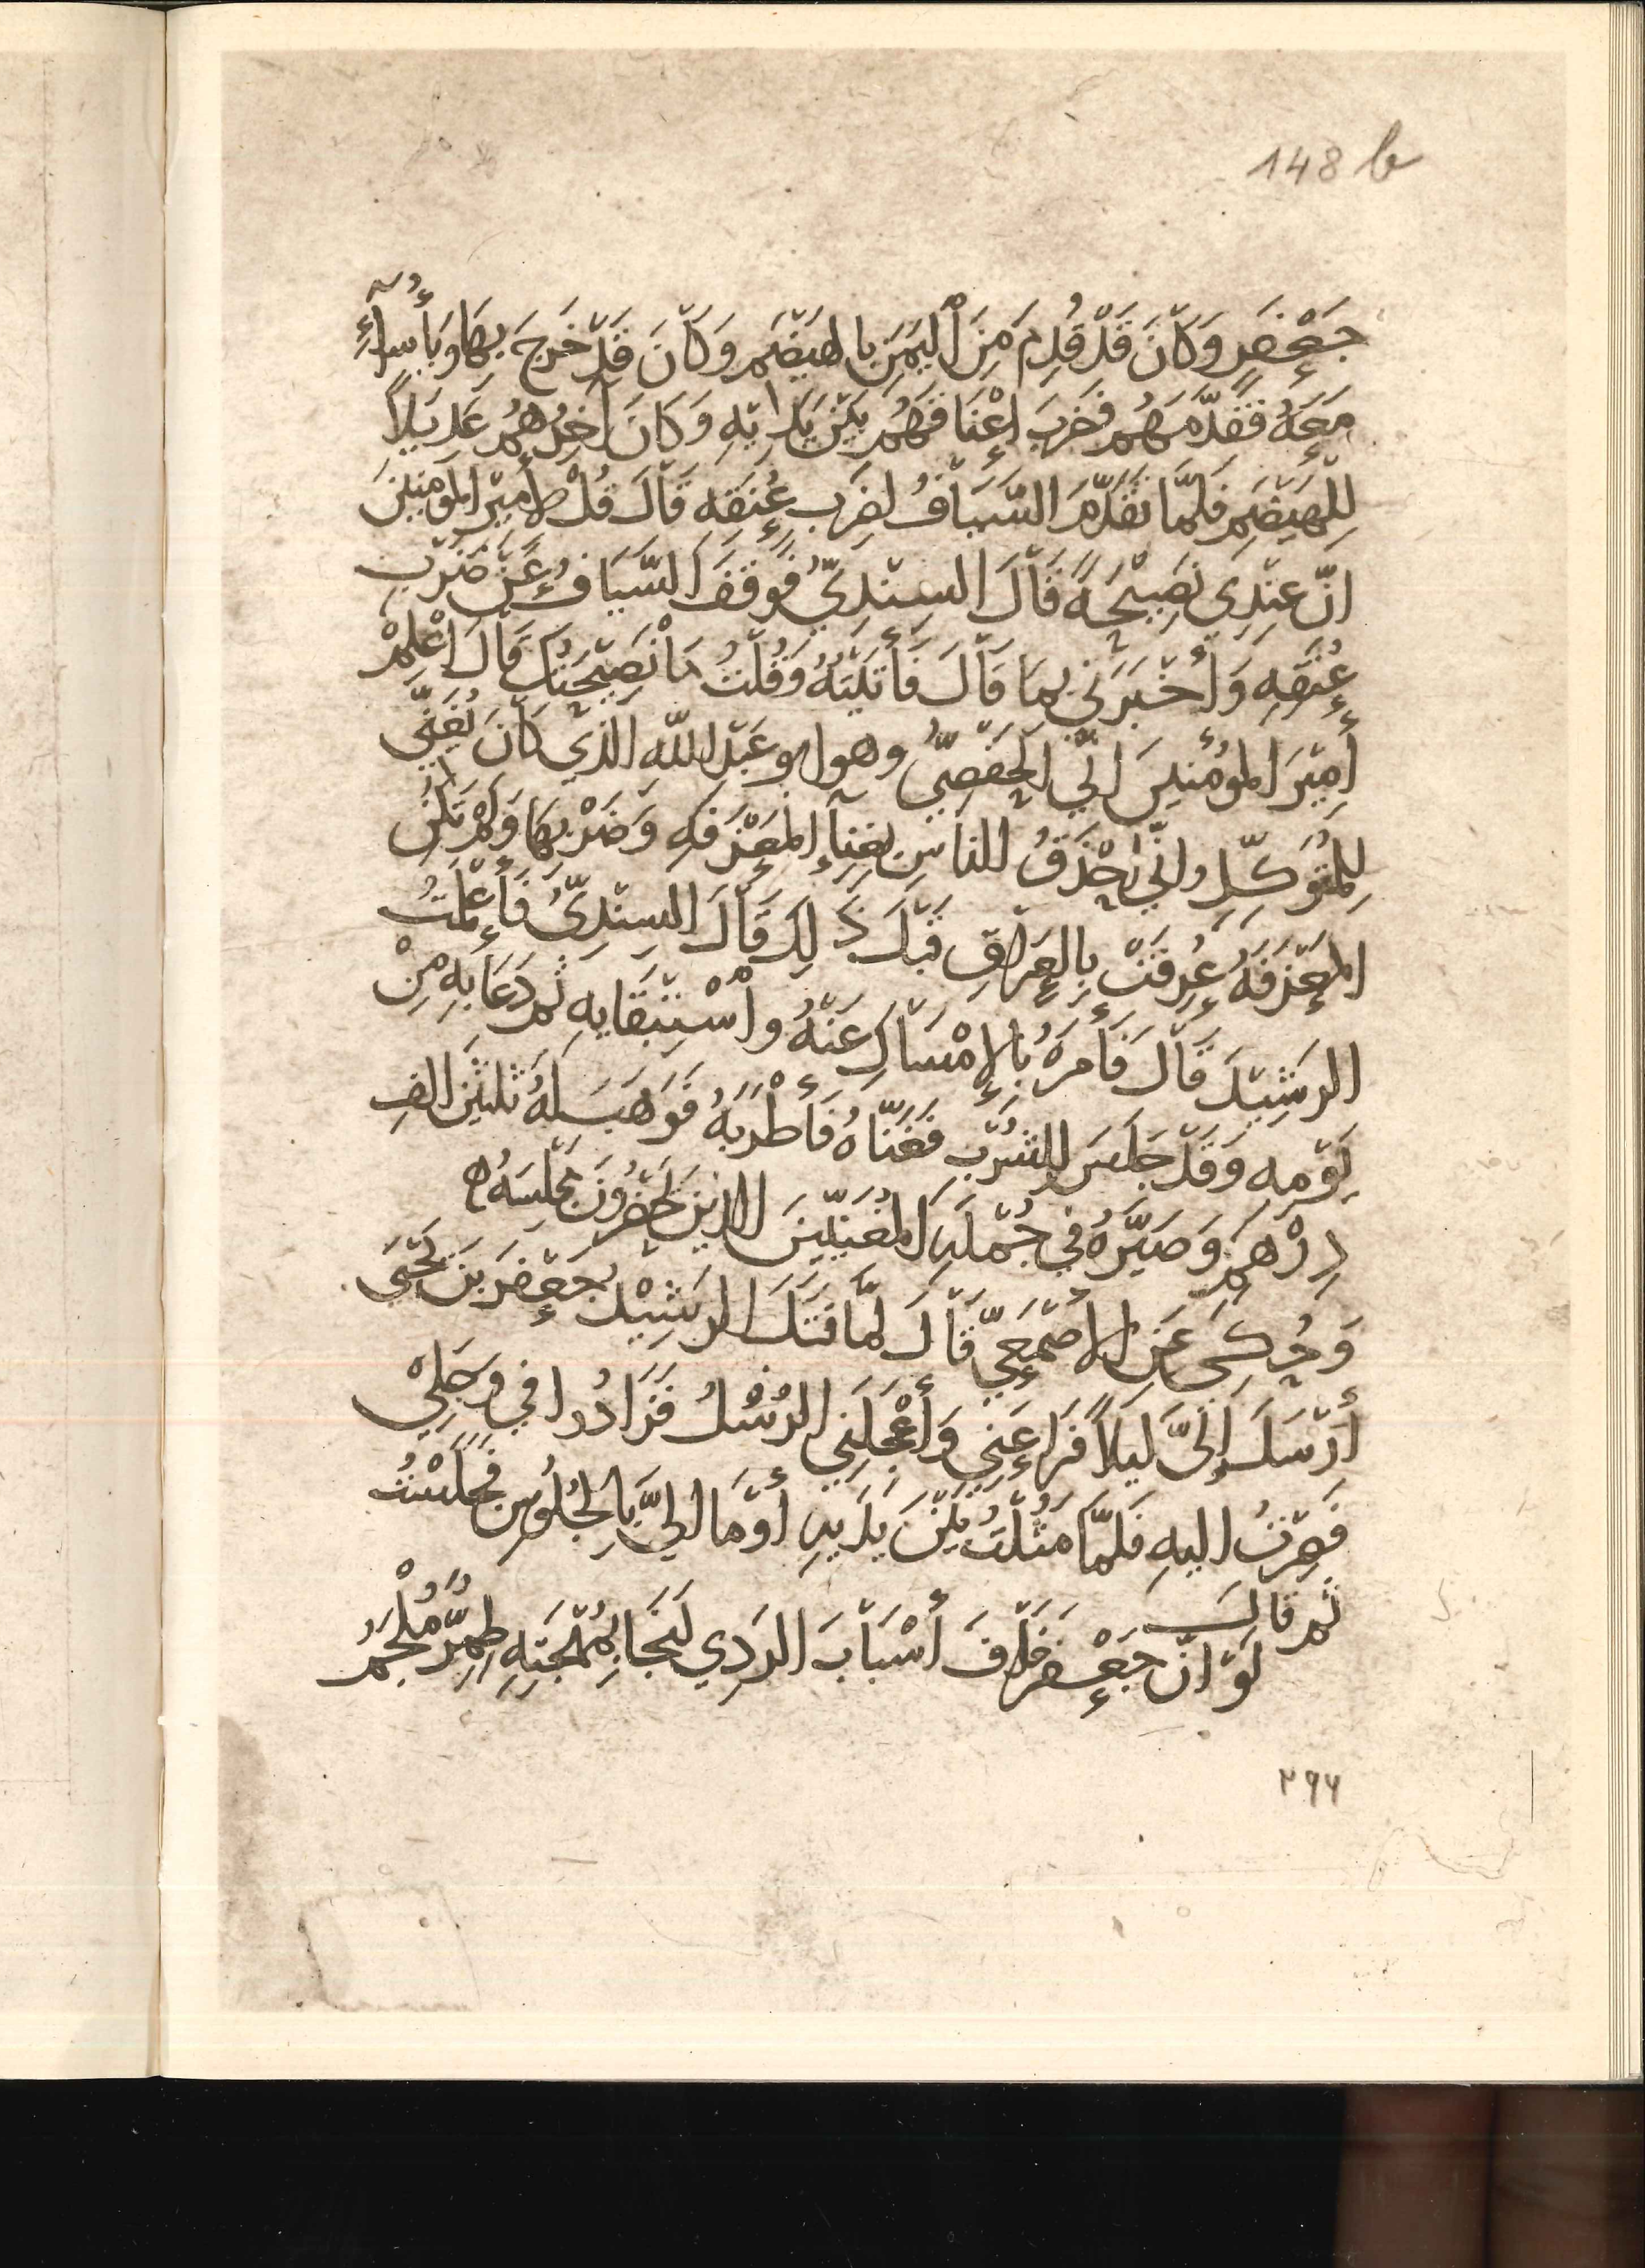 148 b
جَعْفَرٍ وَكَانَ قَدْ قُدِمَ مِنَ الْيَمَنِ بِالهَيْضَمِ وَكَانَ قَدْ خَرَجَ بِهَا وَبِأُسَرَآءِ
مَعَهُ فَقَدَّمَهُم فَضَرَبَ أَعْنَاقَهُم بَيْنَ يَدَيْهِ وَكَانَ آخِرُهُمْ عَدِيلاً
لِلْهَيْضَمِ فَلَمَّا تَقَدَّمَ السَّيَّافُ لِضَرْبِ عُنُقِه قَالَ قُلْ لِأَمِيْرِ المُؤمِنِيْنَ
انّ عِنْدِى نَصِيْحَةً قَالَ السِنْدِيُّ فَوَقَفَ السَّيَّافُ عَنْ ضَرْبِ
عُنُقِهِ وَأَخْبَرَنِي بِمَا قَالَ فَأَتَيْتُهُ وَقُلْتُ مَا نَصِيْحَتُكَ قَالَ اَعْلِمْ
أَمِيْرَ المُؤْمِنينَ انِّي الحَفْصِيُّ وهو ابو عَبْدِ اللّه الذي كَانَ يُغَنِّي
لِلْمُتَوَكِّلِ وانِّي احْذَقُ الناسِ بِغِنَآءِ المِعْزَفَةِ وَضَرْبِهَا وَلَمْ تَكُنِ
المِعْزَفَةُ عُرِفَتْ بِالعِرَاقِ قَبْلَ ذَلِكَ قَالَ السِنْدِيُّ فَأَعْلَمْتُ
الرَشِيْدَ قَالَ فَأَمَرَهُ بِالإِمْسَاكِ عَنْهُ واسْتِبْقَايِهِ ثم دَعَا بِهِ مِنْ
يَوْمِهِ وَقَدْ جَلَسَ لِلشُرْبِ فَغَنَّاهُ فَأَطْرَبَهُ فَوَهَبَ لَهُ ثَلثِيْنَ الفِ
دِرْهَمٍ وَصَيَّرَهُ فِي جُمْلَةِ المُغَنِّيْنَ الذِينَ يَحْضُرُونَ مَجْلِسَهُ ه
وَحُكِيَ عَنِ الأَصْمَعِيِّ قَالَ لمَّا قَتَلَ الرَشِيْدُ جَعْفَرَ بَنَ يَحْيَى
أَرْسَلَ إِلَىَّ لَيْلاً فَرَاعَنِي وَأَعْجَلَنِي الرُسُلُ فَزَادُوا فِي وَجَلِيْ
فَصِرْتُ اليهِ فَلَمَّا مَثُلْتُ بَيْنَ يَدَيهِ أَوْمَا الىَّ بِالجُلُوسِ فَجَلَسْتُ
ثم قال
لَوْ انّ جَعْفَرَ خَافَ أَسْبَابَ الرَدِي لَنَجَا بِمُهْجَتِهِ طِمِرٌّ مُلْجَمُ
٢٩٦